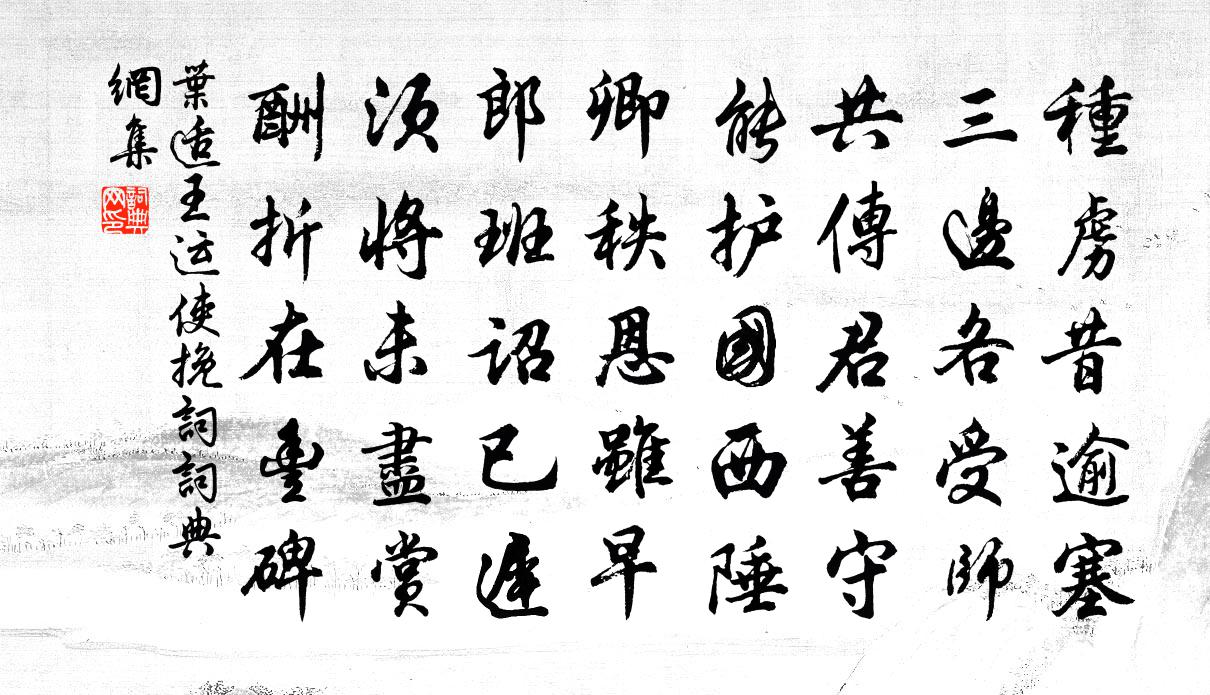 種虜昔逾塞
三邊各受師
共傳君善守
能护國西陲
卿秩恩雖早
郎班詔已遲
須將未盡賞
酬折在豊碑
葉适王运使挽詞詞典
網集
詞典
网印